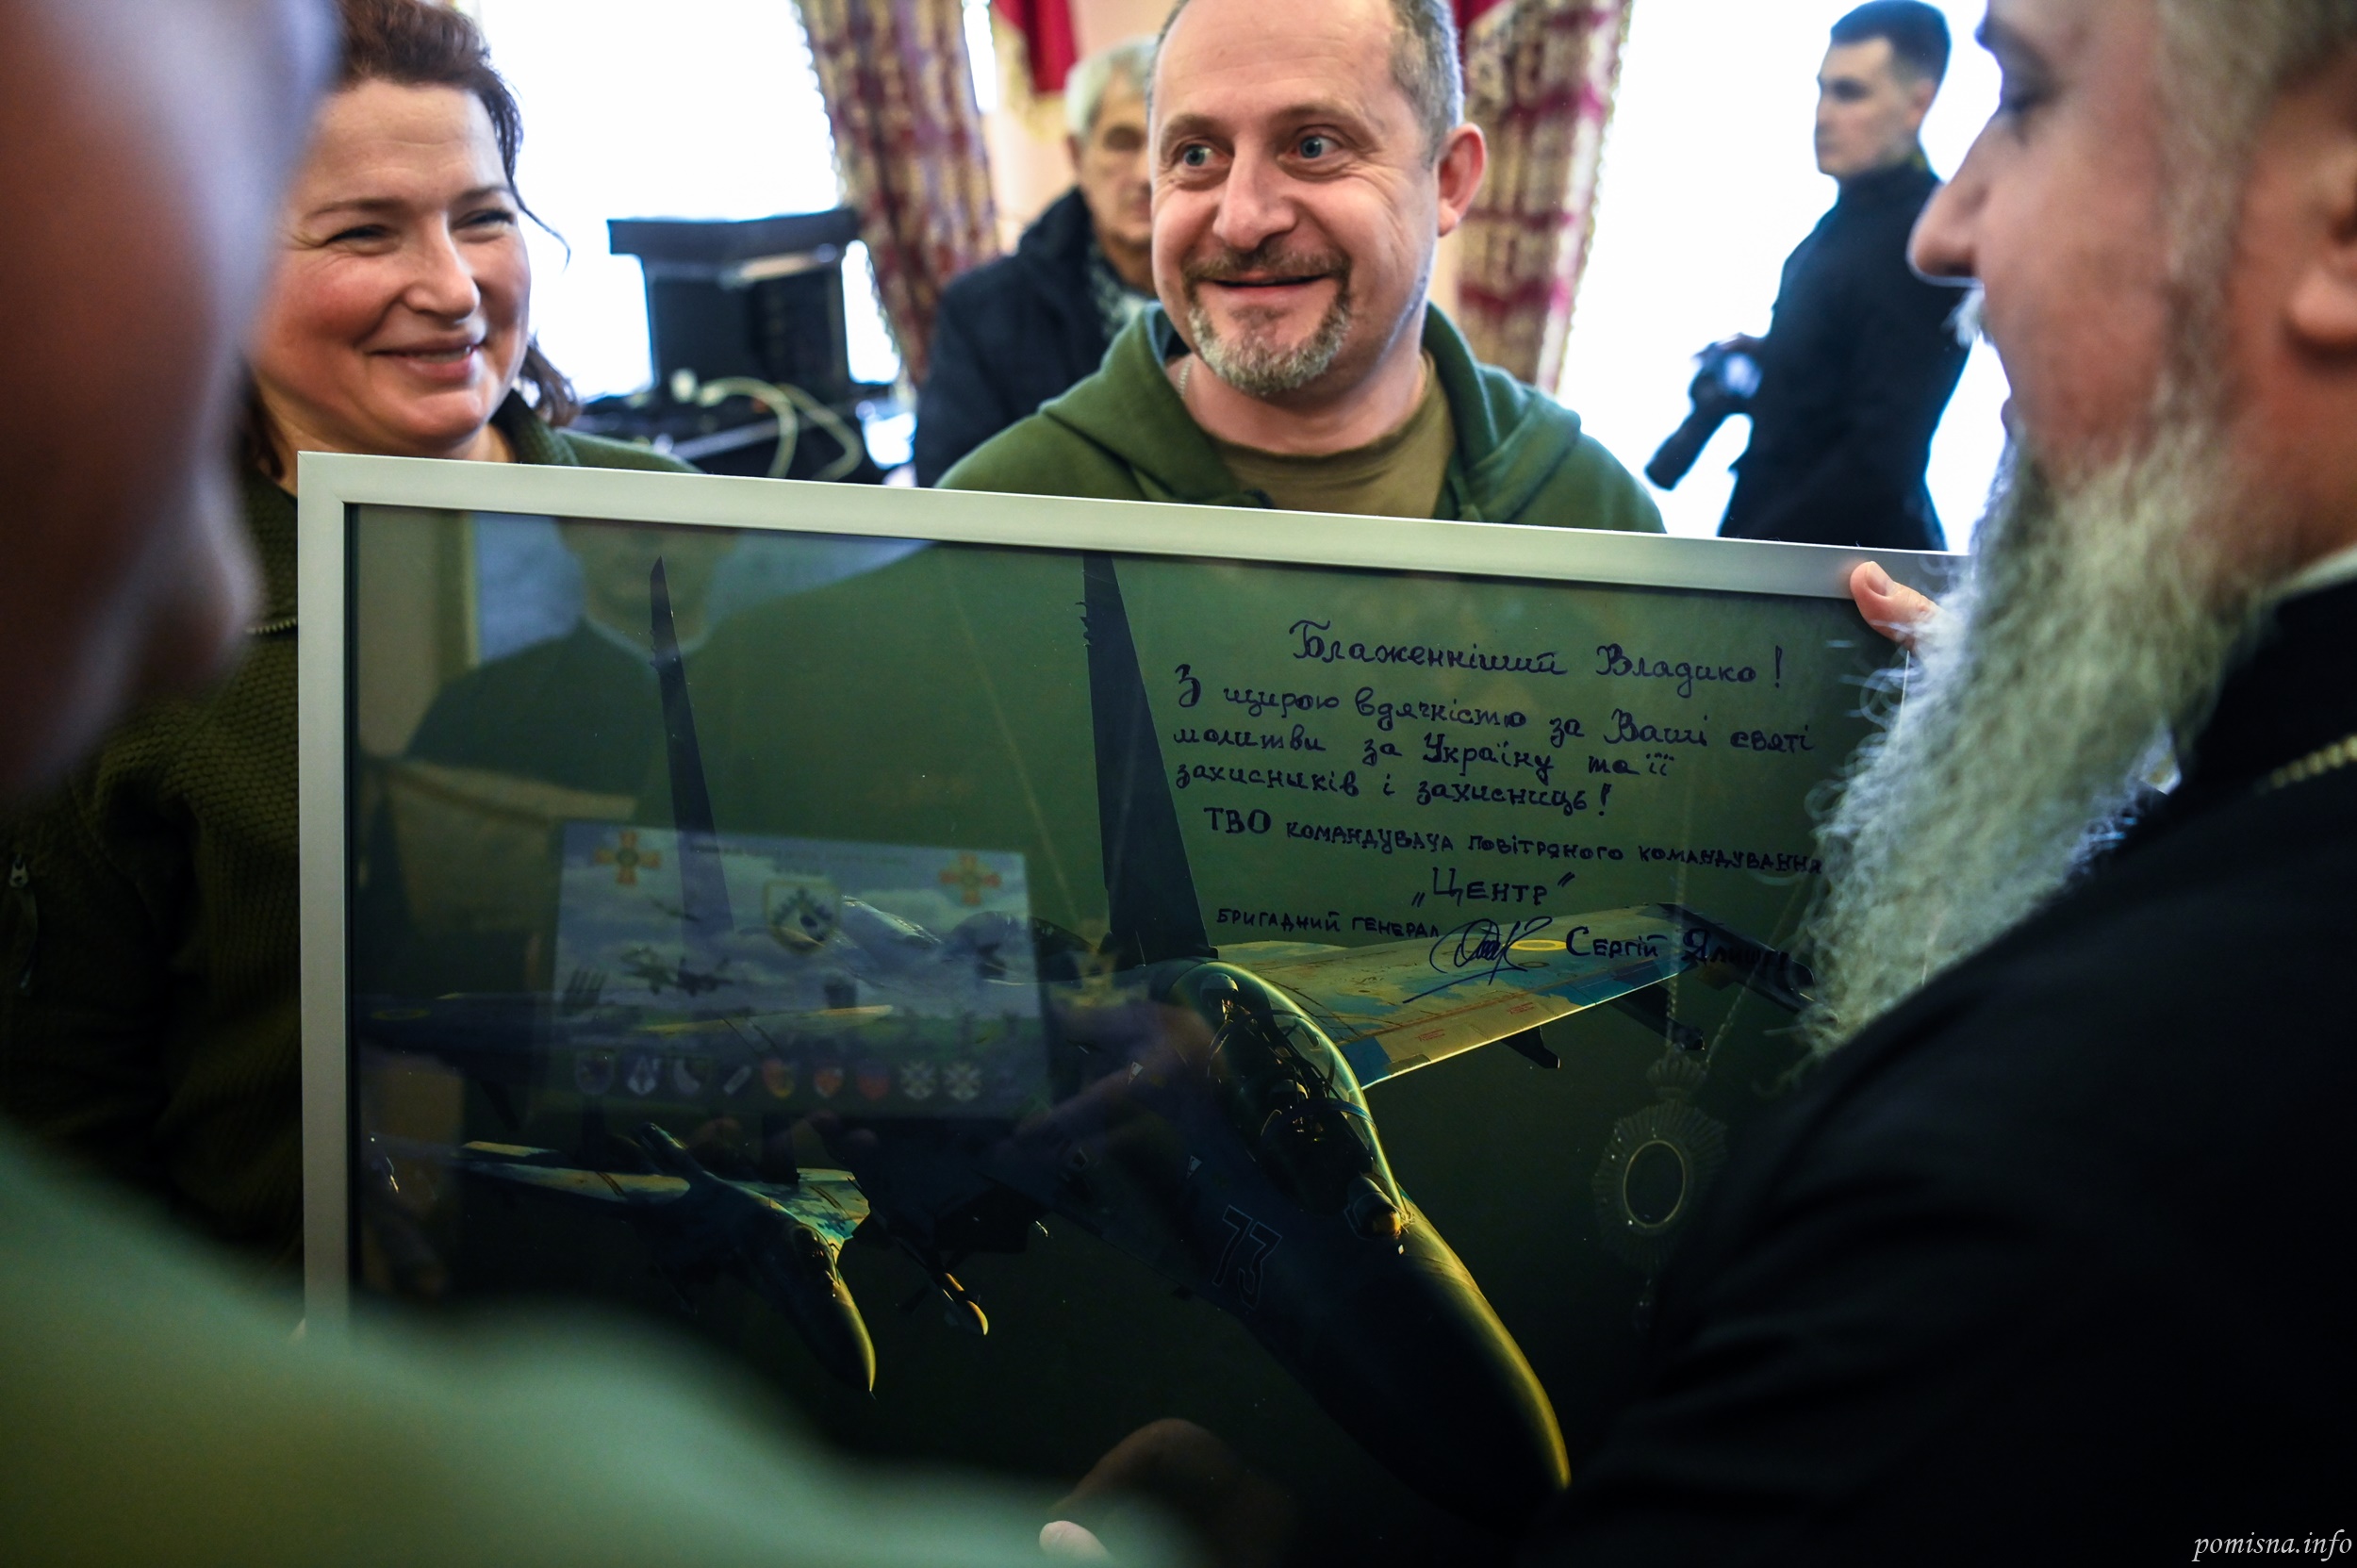 Блаженніший Владико!
З щирою вдячністю за Ваші святі
молитви за Україну та її
захисників і захисниць!
ТВО командувача повітряного командування
„Центр”
бригадний генерал Сергій
73
pomisna.info